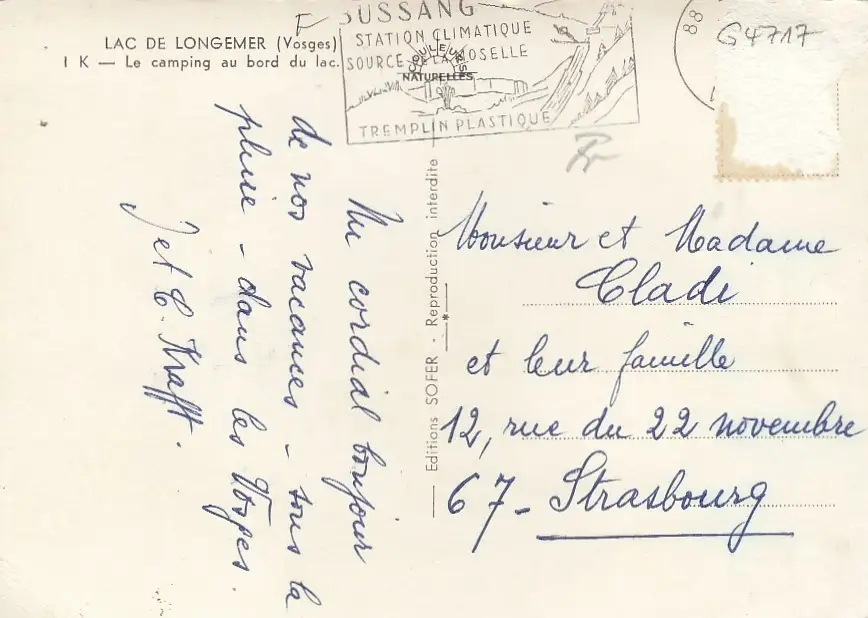 LAC DE LONGEMER (Vosges)
I K — Le camping au bord du lac.
F
BUSSANG
STATION CLIMATIQUE
SOURCE DE LA MOSELLE
TREMPLIN PLASTIQUE
COULEURS
NATURELLES
88
G4717
Un cordial bonjour
de nos vacances - sous la
pluie - dans les Vosges.
J et C. Krafft.
Editions SOFER - Reproduction interdite
Monsieur et Madame
Cladi
et leur famille
12, rue du 22 novembre
67 - Strasbourg